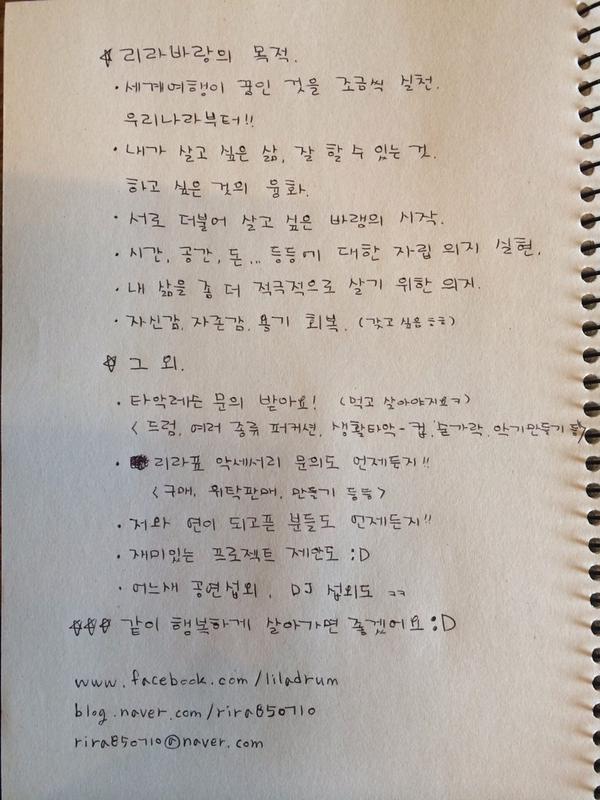 ☆ 리라바랑의 목적.
· 세계여행이 꿈인 것을 조금씩 실천.
우리나라부터!!
· 내가 살고 싶은 삶, 잘 할 수 있는 것.
하고 싶은 것의 융화.
· 서로 더불어 살고 싶은 바램의 시작.
· 시간, 공간, 돈... 등등에 대한 자립 의지 실현.
· 내 삶을 좀 더 적극적으로 살기 위한 의지.
· 자신감, 자존감, 용기 회복. (갖고 싶음 ㅎㅎ)
☆ 그 외.
· 타악레슨 문의 받아요! (먹고 살아야지요ㅋ)
< 드럼, 여러 종류 퍼커션, 생활타악-컵, 숟가락, 악기만들기 등>
· 리라표 악세서리 문의도 언제든지!!
< 구매, 위탁판매, 만들기 등등 >
· 저와 연이 되고픈 분들도 언제든지!!
· 재미있는 프로젝트 제안도 :D
· 어느새 공연섭외, DJ 섭외도 ㅋㅋ
☆☆☆ 같이 행복하게 살아가면 좋겠어요 :D
www.facebook.com/liladrum
blog.naver.com/rira850710
rira850710@naver.com